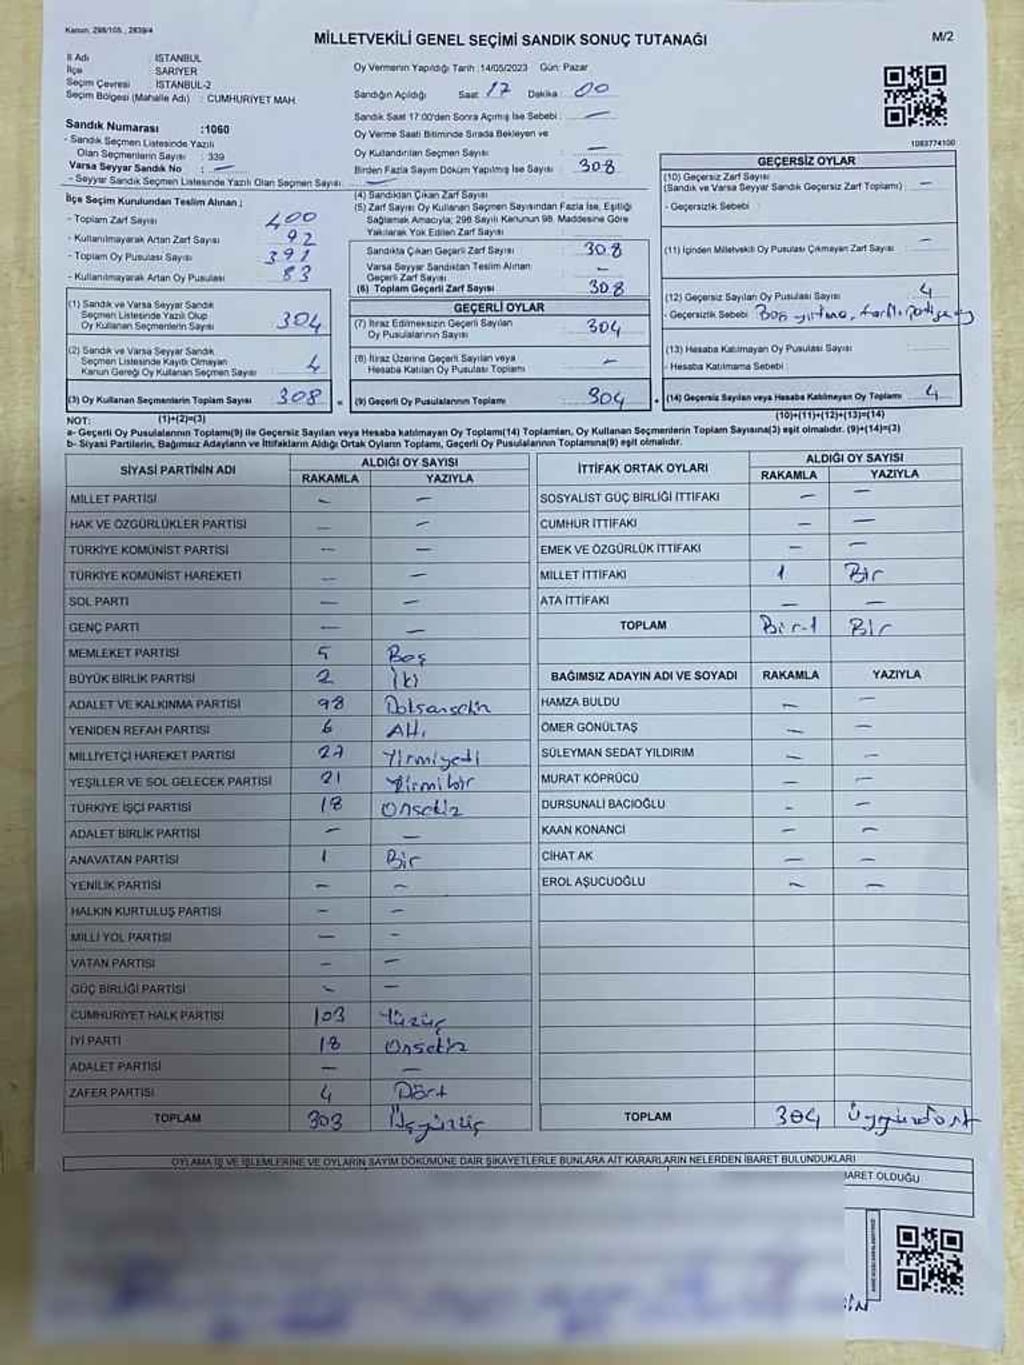 Kanun: 298/105., 2839/4
MİLLETVEKİLİ GENEL SEÇİMİ SANDIK SONUÇ TUTANAĞI
M/2
İl Adı : İSTANBUL
İlçe : SARIYER
Seçim Çevresi : İSTANBUL-2
Seçim Bölgesi (Mahalle Adı) : CUMHURİYET MAH.
Sandık Numarası :1060
- Sandık Seçmen Listesinde Yazılı
Olan Seçmenlerin Sayısı : 339
Varsa Seyyar Sandık No : —
- Seyyar Sandık Seçmen Listesinde Yazılı Olan Seçmen Sayısı: —
İlçe Seçim Kurulundan Teslim Alınan ;
- Toplam Zarf Sayısı 400
- Kullanılmayarak Artan Zarf Sayısı 92
- Toplam Oy Pusulası Sayısı 391
- Kullanılmayarak Artan Oy Pusulası 83
(1) Sandık ve Varsa Seyyar Sandık
Seçmen Listesinde Yazılı Olup
Oy Kullanan Seçmenlerin Sayısı 304
(2) Sandık ve Varsa Seyyar Sandık
Seçmen Listesinde Kayıtlı Olmayan
Kanun Gereği Oy Kullanan Seçmen Sayısı 4
(3) Oy Kullanan Seçmenlerin Toplam Sayısı 308 =
(1)+(2)=(3)
Oy Vermenin Yapıldığı Tarih :14/05/2023 Gün: Pazar
Sandığın Açıldığı Saat: 17 Dakika : 00
Sandık Saat 17:00'den Sonra Açılmış İse Sebebi : —
Oy Verme Saati Bitiminde Sırada Bekleyen ve
Oy Kullandırılan Seçmen Sayısı —
Birden Fazla Seçim Döküm Yapılmış İse Sayısı : 308
(4) Sandıktan Çıkan Zarf Sayısı
(5) Zarf Sayısı Oy Kullanan Seçmen Sayısından Fazla İse, Eşitliği
Sağlamak Amacıyla; 298 Sayılı Kanunun 98. Maddesine Göre
Yakılarak Yok Edilen Zarf Sayısı :
Sandıkta Çıkan Geçerli Zarf Sayısı 308
Varsa Seyyar Sandıktan Teslim Alınan
Geçerli Zarf Sayısı —
(6) Toplam Geçerli Zarf Sayısı 308
GEÇERLİ OYLAR
(7) İtiraz Edilmeksizin Geçerli Sayılan
Oy Pusulalarının Sayısı 304
(8) İtiraz Üzerine Geçerli Sayılan veya
Hesaba Katılan Oy Pusulası Toplamı —
(9) Geçerli Oy Pusulalarının Toplamı 304 +
1083774100
GEÇERSİZ OYLAR
(10) Geçersiz Zarf Sayısı
(Sandık ve Varsa Seyyar Sandık Geçersiz Zarf Toplamı) : —
- Geçersizlik Sebebi :
(11) İçinden Milletvekili Oy Pusulası Çıkmayan Zarf Sayısı —
(12) Geçersiz Sayılan Oy Pusulası Sayısı 4
- Geçersizlik Sebebi : Boş
(13) Hesaba Katılmayan Oy Pusulası Sayısı :
- Hesaba Katılmama Sebebi :
(14) Geçersiz Sayılan veya Hesaba Katılmayan Oy Toplamı 4
(10)+(11)+(12)+(13)=(14)
NOT:
a- Geçerli Oy Pusulalarının Toplamı(9) ile Geçersiz Sayılan veya Hesaba katılmayan Oy Toplamı(14) Toplamları, Oy Kullanan Seçmenlerin Toplam Sayısına(3) eşit olmalıdır. (9)+(14)=(3)
b- Siyasi Partilerin, Bağımsız Adayların ve İttifakların Aldığı Ortak Oyların Toplamı, Geçerli Oy Pusulalarının Toplamına(9) eşit olmalıdır.
SİYASİ PARTİNİN ADI ALDIĞI OY SAYISI
RAKAMLA YAZIYLA
MİLLET PARTİSİ — —
HAK VE ÖZGÜRLÜKLER PARTİSİ — —
TÜRKİYE KOMÜNİST PARTİSİ — —
TÜRKİYE KOMÜNİST HAREKETİ — —
SOL PARTİ — —
GENÇ PARTİ — —
MEMLEKET PARTİSİ 5 Beş
BÜYÜK BİRLİK PARTİSİ 2 İki
ADALET VE KALKINMA PARTİSİ 98 Doksansekiz
YENİDEN REFAH PARTİSİ 6 Altı
MİLLİYETÇİ HAREKET PARTİSİ 27 Yirmiyedi
YEŞİLLER VE SOL GELECEK PARTİSİ 21 Yirmibir
TÜRKİYE İŞÇİ PARTİSİ 18 Onsekiz
ADALET BİRLİK PARTİSİ — —
ANAVATAN PARTİSİ 1 Bir
YENİLİK PARTİSİ — —
HALKIN KURTULUŞ PARTİSİ — —
MİLLİ YOL PARTİSİ — —
VATAN PARTİSİ — —
GÜÇ BİRLİĞİ PARTİSİ — —
CUMHURİYET HALK PARTİSİ 103 Yüzüç
İYİ PARTİ 18 Onsekiz
ADALET PARTİSİ — —
ZAFER PARTİSİ 4 Dört
TOPLAM 303 Üçyüzüç
İTTİFAK ORTAK OYLARI ALDIĞI OY SAYISI
RAKAMLA YAZIYLA
SOSYALİST GÜÇ BİRLİĞİ İTTİFAKI — —
CUMHUR İTTİFAKI — —
EMEK VE ÖZGÜRLÜK İTTİFAKI — —
MİLLET İTTİFAKI 1 Bir
ATA İTTİFAKI — —
TOPLAM Bir-1 Bir
BAĞIMSIZ ADAYIN ADI VE SOYADI RAKAMLA YAZIYLA
HAMZA BULDU — —
ÖMER GÖNÜLTAŞ — —
SÜLEYMAN SEDAT YILDIRIM — —
MURAT KÖPRÜCÜ — —
DURSUNALİ BACIOĞLU — —
KAAN KONANCI — —
CİHAT AK — —
EROL AŞUCUOĞLU — —
TOPLAM 304 Üçyüzdört
OYLAMA İŞ VE İŞLEMLERİNE VE OYLARIN SAYIM DÖKÜMÜNE DAİR ŞİKAYETLERLE BUNLARA AİT KARARLARIN NELERDEN İBARET BULUNDUKLARI
BARET OLDUĞU